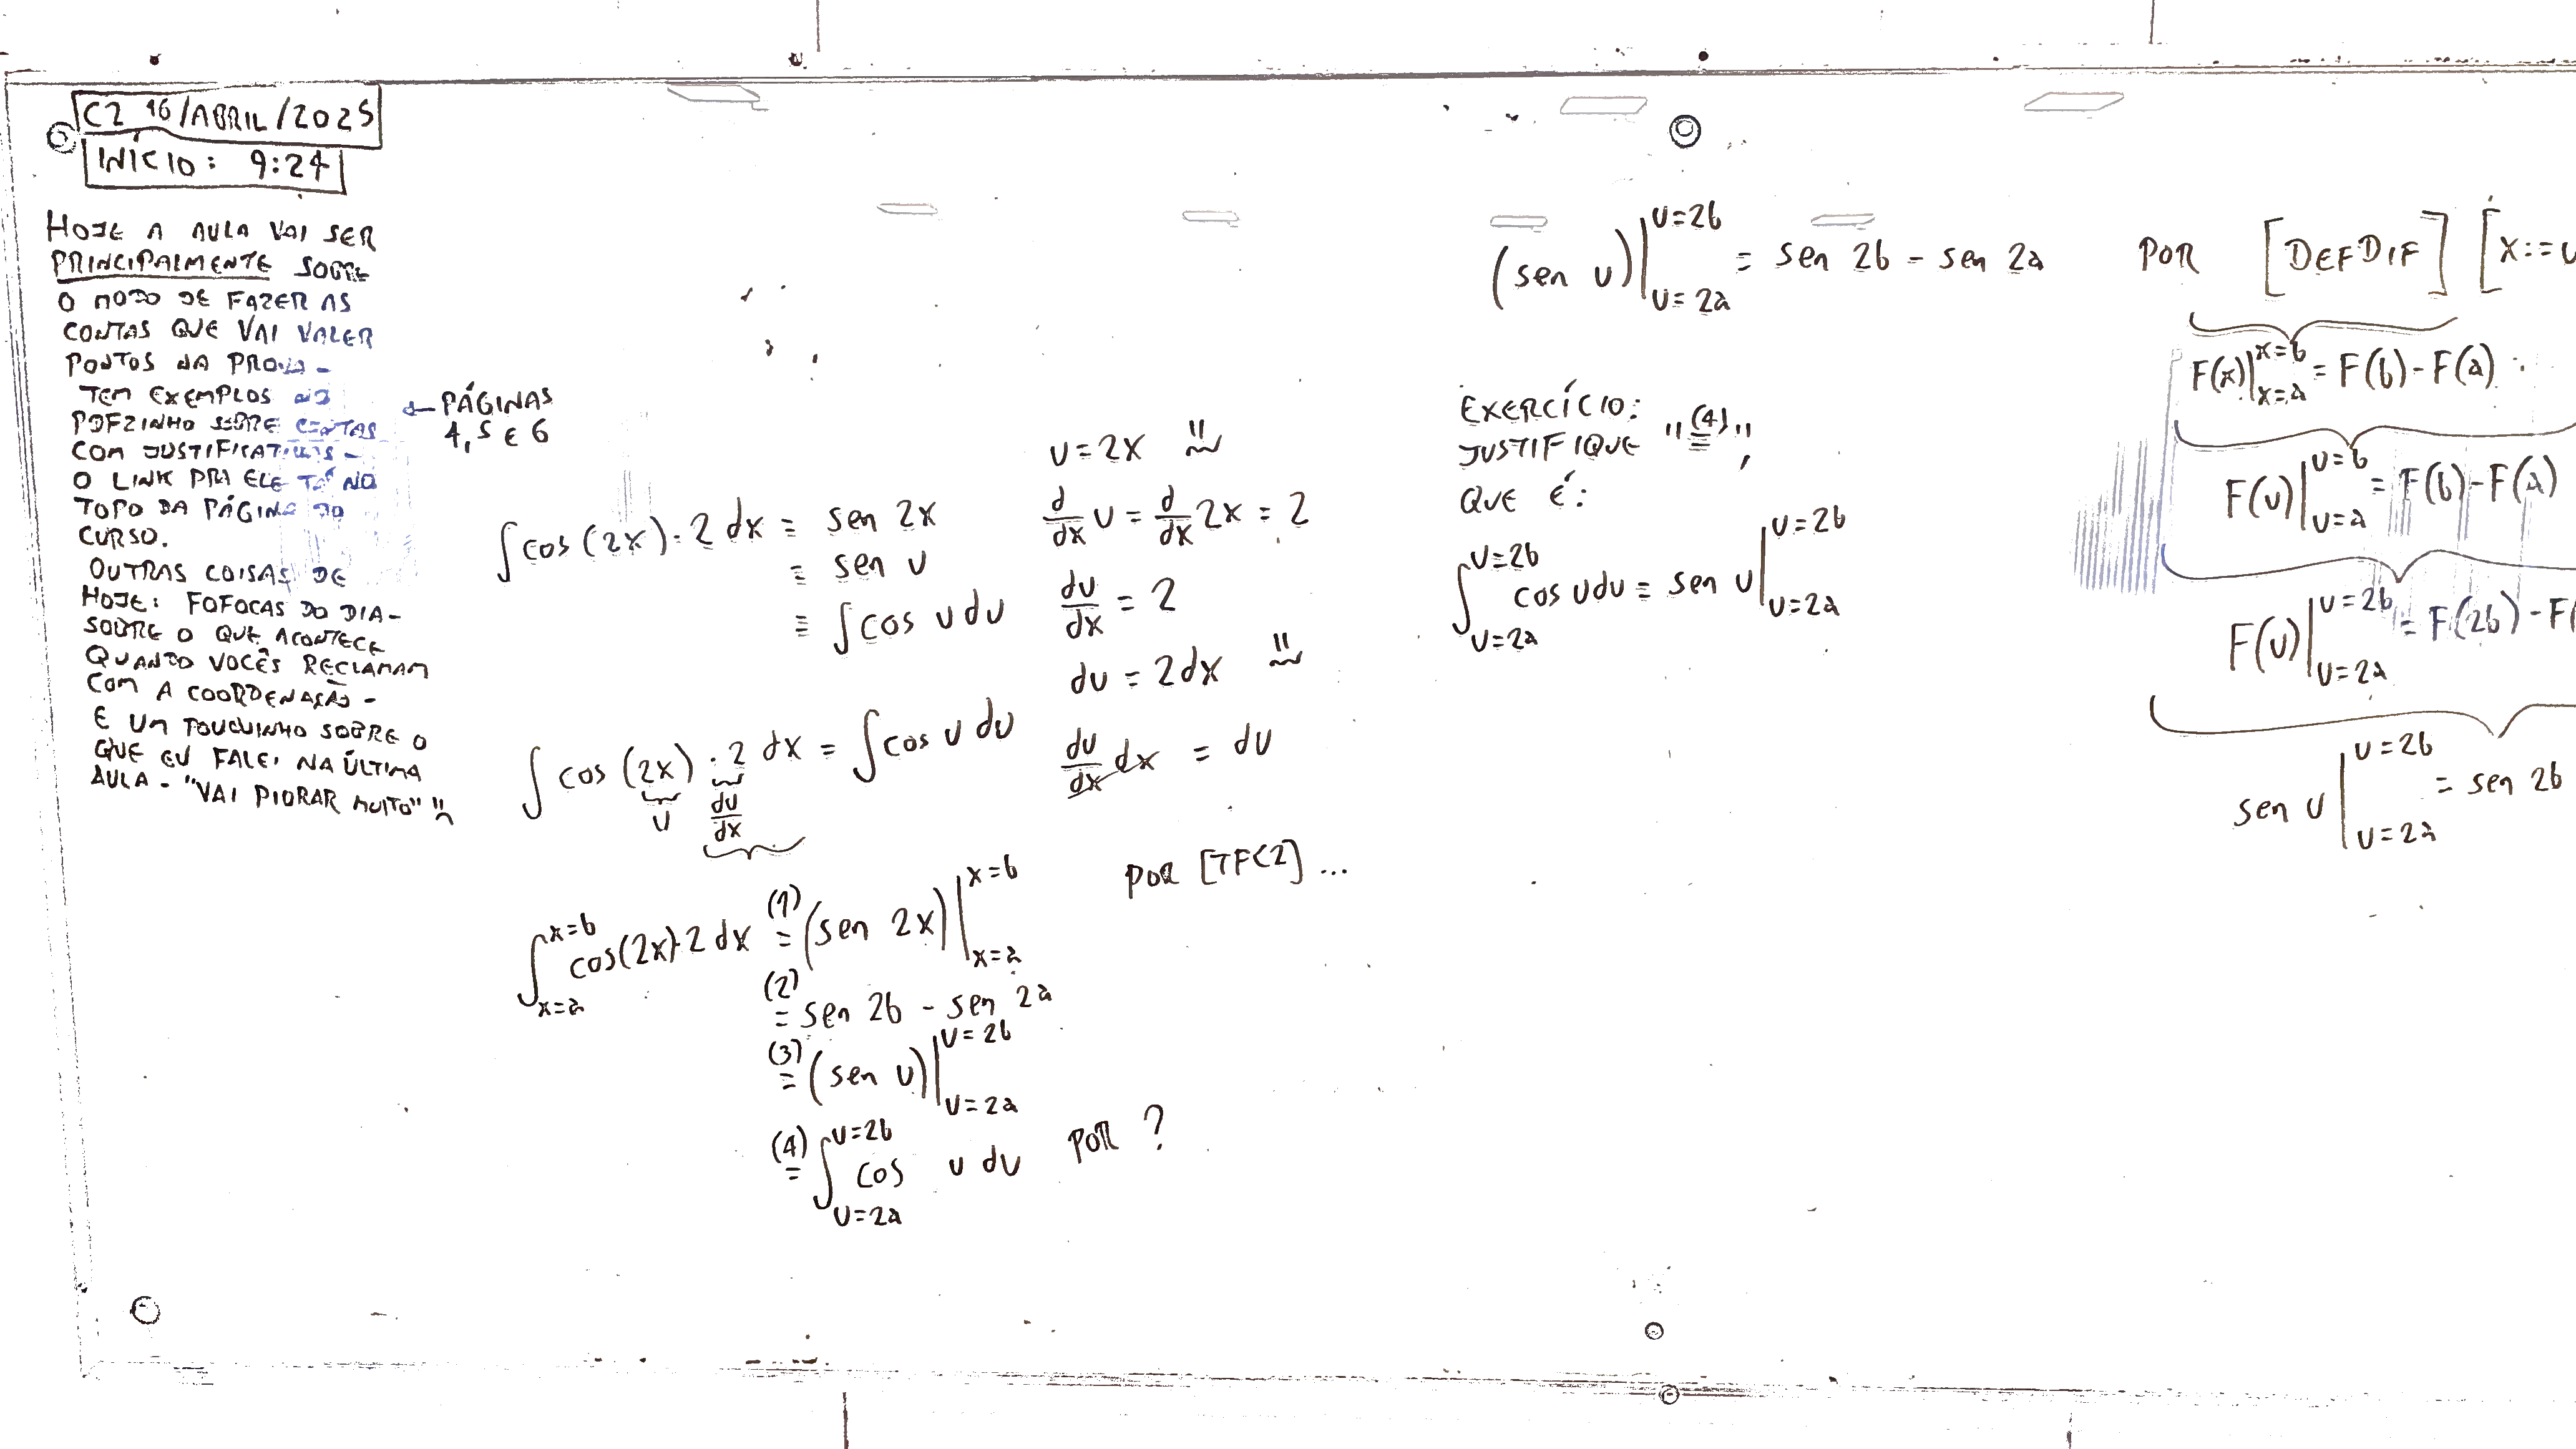 C2 16/ABRIL/2025
INÍCIO: 9:24
HOJE A AULA VAI SER
PRINCIPALMENTE SOBRE
O MODO DE FAZER AS
CONTAS QUE VAI VALER
PONTOS NA PROVA –
TEM EXEMPLOS NO
PDFZINHO SOBRE CONTAS
COM JUSTIFICATIVAS –
O LINK PRA ELE TÁ NO
TOPO DA PÁGINA DO
CURSO.
OUTRAS COISAS DE
HOJE: FOFOCAS DO DIA –
SOBRE O QUE ACONTECE
QUANDO VOCÊS RECLAMAM
COM A COORDENAÇÃO –
E UM POUQUINHO SOBRE O
QUE EU FALEI NA ÚLTIMA
AULA – "VAI PIORAR MUITO"
← PÁGINAS
4, 5 E 6
∫ cos(2x)·2 dx = sen 2x
= sen u
= ∫ cos u du
u = 2x
d/dx u = d/dx 2x = 2
du/dx = 2
du = 2dx
du/dx dx = du
∫ cos(2x)·2 dx = ∫ cos u du
u
du/dx
∫_{x=a}^{x=b} cos(2x)·2 dx (1)= (sen 2x)|_{x=a}^{x=b} POR [TFC2] ...
(2)= sen 2b – sen 2a
(3)= (sen u)|_{u=2a}^{u=2b}
(4)= ∫_{u=2a}^{u=2b} cos u du POR ?
(sen u)|_{u=2a}^{u=2b} = sen 2b – sen 2a POR [DEFDIF] [x:=u
EXERCÍCIO:
JUSTIFIQUE "(4)=",
QUE É:
∫_{u=2a}^{u=2b} cos u du = sen u|_{u=2a}^{u=2b}
F(x)|_{x=a}^{x=b} = F(b) – F(a)
F(u)|_{u=a}^{u=b} = F(b) – F(a)
F(u)|_{u=2a}^{u=2b} = F(2b) – F(
sen u|_{u=2a}^{u=2b} = sen 2b